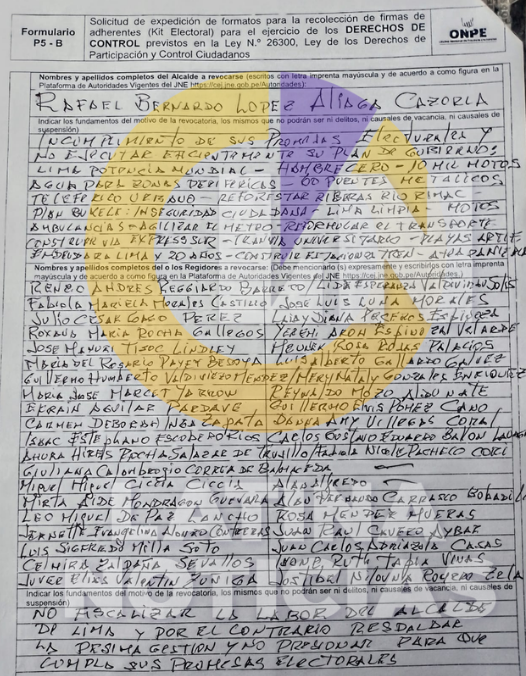 Formulario
P5 - B
Solicitud de expedición de formatos para la recolección de firmas de
adherentes (Kit Electoral) para el ejercicio de los DERECHOS DE
CONTROL previstos en la Ley N.° 26300, Ley de los Derechos de
Participación y Control Ciudadanos
ONPE
Nombres y apellidos completos del Alcalde a revocarse (escritos con letra imprenta mayúscula y de acuerdo a como figura en la
Plataforma de Autoridades Vigentes del JNE https://cej.jne.gob.pe/Autoridades):
RAFAEL BERNARDO LOPEZ ALIAGA CAZORLA
Indicar los fundamentos del motivo de la revocatoria, los mismos que no podrán ser ni delitos, ni causales de vacancia, ni causales de
suspensión)
INCUMPLIMIENTO DE SUS PROMESAS ELECTORALES Y
NO EJECUTAR EFICIENTEMENTE SU PLAN DE GOBIERNO
LIMA POTENCIA MUNDIAL - HAMBRE CERO - 10 MIL MOTOS
AGUA PARA ZONAS PERIFERICAS - 60 PUENTES METALICOS
TELEFERICO URBANO - REFORESTAR RIBERAS RIO RIMAC
PLAN BUKELE: INSEGURIDAD CIUDADANA - LIMA LIMPIA - MOTOS
AMBULANCIAS - AGILIZAR EL METRO - REFORMULAR EL TRANSPORTE
CONSTRUIR VIA EXPRESA SUR - TRANVIA UNIVERSITARIO - PLAYAS ARTIF
ENDEUDAR A LIMA 20 AÑOS - CONSTRUIR ESTACION TREN
Nombres y apellidos completos del o los Regidores a revocarse: (Debe mencionarlo (s) expresamente y escribirlos con letra imprenta
mayúscula y de acuerdo a como figura en la Plataforma de Autoridades Vigentes del JNE https://cej.jne.gob.pe/Autoridades.)
RENZO ANDRES REGGIARDO BARRETO / LIDA ESPERANZA
FABIOLA MARIELA MORALES CASTILLO JOSE LUIS LUNA MORALES
JULIO CESAR GAGO PEREZ LEYDY DIANA PECEROS ESPINOZA
ROXANA MARIA ROCHA GALLEGOS YEREMI ARON ESPINOZA VELARDE
JOSE MANUEL TISOC LINDLEY ROSA ROJAS PALACIOS
MARIA DEL ROSARIO PAYET BEDOYA LUIS ALBERTO GALLARDO GALVEZ
GUILLERMO HUMBERTO VALDIVIEZO MENDEZ / MERY NATALY GONZALES ENRIQUEZ
MARIA JOSE REYNALDO MOZO
EFRAIN AGUILAR PARDAVE GUILLERMO ELVIS POMEZ CANO
CARMEN DEBORAH INGA ZAPATA DANNA AMY VILLEGAS CORAL
ISAAC ESTEPHANO ESCOBEDO RIOS CARLOS GUSTAVO EDUARDO BALON
ROCHA SALAZAR DE TRUJILLO / FABIOLA NICOLE PACHECO
GIULIANA CALAMBROGIO CORREA DE BALMACEDA
MIGUEL MIGUEL CICCIA CICCIA
MIRTA AIDE MONDRAGON GUEVARA ALDO FERNANDO CARRASCO BOBADILLA
LEO MIGUEL DE PAZ LANCHO ROSA MENDEZ MUERAS
EVANGELINA CONTRERAS JUAN RAUL CAVERO AYBAR
LUIS SIGFREDO MILLA SOTO JUAN CARLOS ADRIAZOLA CASAS
CELMIRA SALDAÑA SEVALLOS IVONE RUTH TAPIA VIVAS
JUVER ELIAS VALENTIN ZUÑIGA
Indicar los fundamentos del motivo de la revocatoria, los mismos que no podrán ser ni delitos, ni causales de vacancia, ni causales de
suspensión)
NO FISCALIZAR LA LABOR DEL ALCALDE
DE LIMA Y POR EL CONTRARIO RESPALDAR
LA PESIMA GESTION Y NO PRESIONAR PARA QUE
CUMPLA SUS PROMESAS ELECTORALES